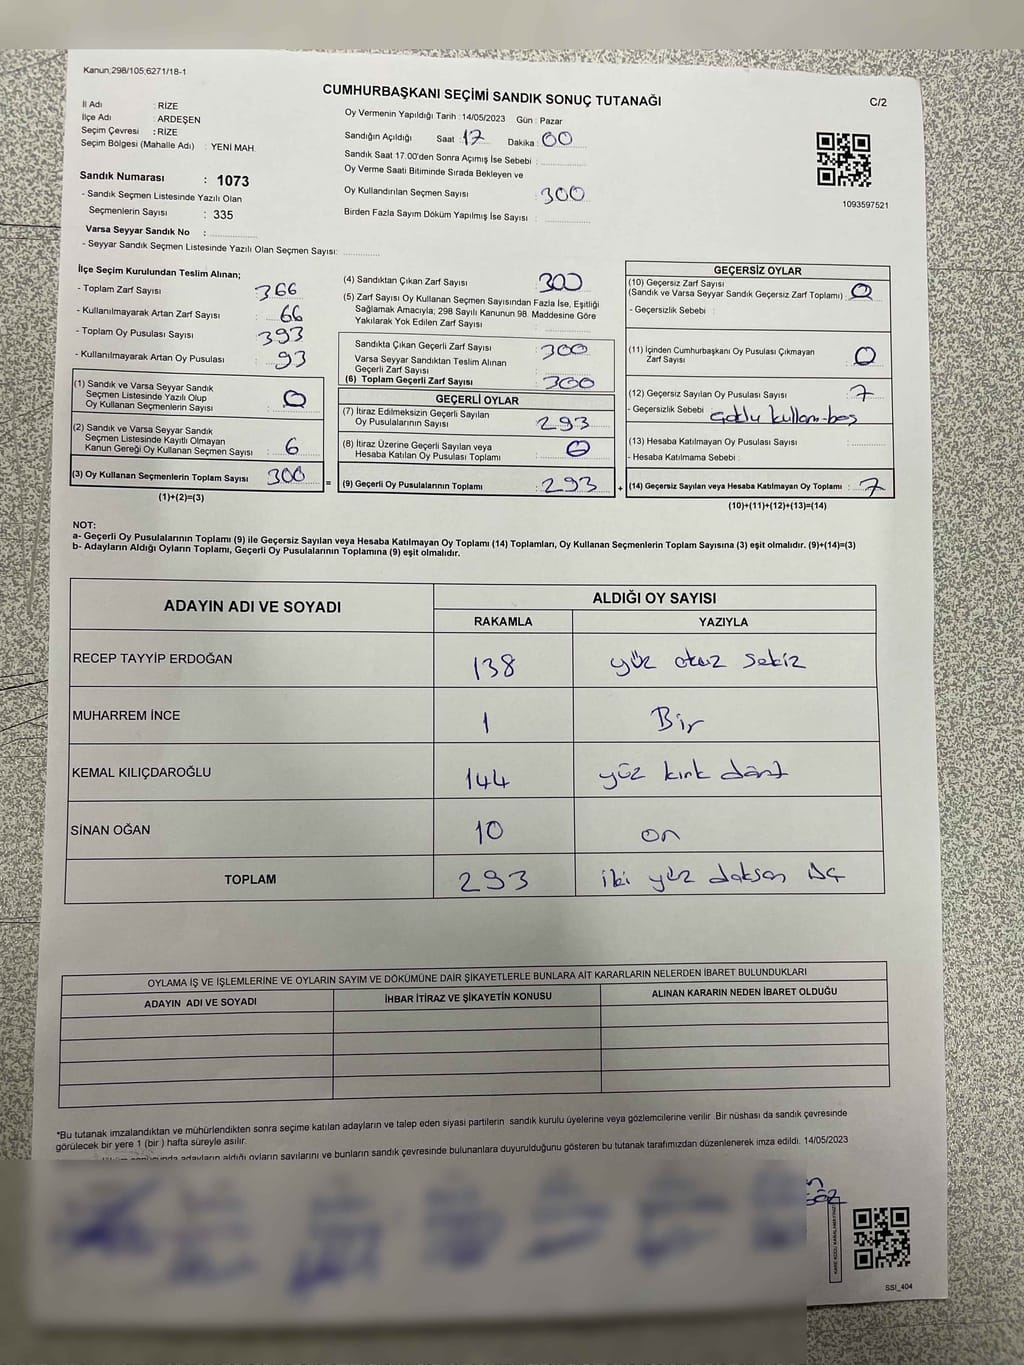 Kanun;298/105;6271/18-1
CUMHURBAŞKANI SEÇİMİ SANDIK SONUÇ TUTANAĞI
C/2
İl Adı : RİZE
İlçe Adı : ARDEŞEN
Seçim Çevresi : RİZE
Seçim Bölgesi (Mahalle Adı) : YENİ MAH.
Sandık Numarası : 1073
- Sandık Seçmen Listesinde Yazılı Olan
Seçmenlerin Sayısı : 335
Varsa Seyyar Sandık No :
- Seyyar Sandık Seçmen Listesinde Yazılı Olan Seçmen Sayısı:
Oy Vermenin Yapıldığı Tarih : 14/05/2023 Gün : Pazar
Sandığın Açıldığı Saat : 17 Dakika : 00
Sandık Saat 17.00'den Sonra Açımış İse Sebebi :
Oy Verme Saati Bitiminde Sırada Bekleyen ve
Oy Kullandırılan Seçmen Sayısı : 300
Birden Fazla Sayım Döküm Yapılmış İse Sayısı :
1093597521
İlçe Seçim Kurulundan Teslim Alınan;
- Toplam Zarf Sayısı : 366
- Kullanılmayarak Artan Zarf Sayısı : 66
- Toplam Oy Pusulası Sayısı : 393
- Kullanılmayarak Artan Oy Pusulası : 93
(1) Sandık ve Varsa Seyyar Sandık
Seçmen Listesinde Yazılı Olup
Oy Kullanan Seçmenlerin Sayısı : 0
(2) Sandık ve Varsa Seyyar Sandık
Seçmen Listesinde Kayıtlı Olmayan
Kanun Gereği Oy Kullanan Seçmen Sayısı : 6
(3) Oy Kullanan Seçmenlerin Toplam Sayısı : 300
(1)+(2)=(3)
(4) Sandıktan Çıkan Zarf Sayısı : 300
(5) Zarf Sayısı Oy Kullanan Seçmen Sayısından Fazla İse, Eşitliği
Sağlamak Amacıyla; 298 Sayılı Kanunun 98. Maddesine Göre
Yakılarak Yok Edilen Zarf Sayısı :
Sandıkta Çıkan Geçerli Zarf Sayısı : 300
Varsa Seyyar Sandıktan Teslim Alınan
Geçerli Zarf Sayısı :
(6) Toplam Geçerli Zarf Sayısı : 300
GEÇERLİ OYLAR
(7) İtiraz Edilmeksizin Geçerli Sayılan
Oy Pusulalarının Sayısı : 293
(8) İtiraz Üzerine Geçerli Sayılan veya
Hesaba Katılan Oy Pusulası Toplamı : 0
= (9) Geçerli Oy Pusulalarının Toplamı : 293
GEÇERSİZ OYLAR
(10) Geçersiz Zarf Sayısı
(Sandık ve Varsa Seyyar Sandık Geçersiz Zarf Toplamı) : 0
- Geçersizlik Sebebi :
(11) İçinden Cumhurbaşkanı Oy Pusulası Çıkmayan
Zarf Sayısı : 0
(12) Geçersiz Sayılan Oy Pusulası Sayısı : 7
- Geçersizlik Sebebi : çoklu kullanı-boş
(13) Hesaba Katılmayan Oy Pusulası Sayısı :
- Hesaba Katılmama Sebebi :
+ (14) Geçersiz Sayılan veya Hesaba Katılmayan Oy Toplamı : 7
(10)+(11)+(12)+(13)=(14)
NOT:
a- Geçerli Oy Pusulalarının Toplamı (9) ile Geçersiz Sayılan veya Hesaba Katılmayan Oy Toplamı (14) Toplamları, Oy Kullanan Seçmenlerin Toplam Sayısına (3) eşit olmalıdır. (9)+(14)=(3)
b- Adayların Aldığı Oyların Toplamı, Geçerli Oy Pusulalarının Toplamına (9) eşit olmalıdır.
ADAYIN ADI VE SOYADI ALDIĞI OY SAYISI
RAKAMLA YAZIYLA
RECEP TAYYİP ERDOĞAN 138 yüz otuz sekiz
MUHARREM İNCE 1 Bir
KEMAL KILIÇDAROĞLU 144 yüz kırk dört
SİNAN OĞAN 10 on
TOPLAM 293 iki yüz doksan üç
OYLAMA İŞ VE İŞLEMLERİNE VE OYLARIN SAYIM VE DÖKÜMÜNE DAİR ŞİKAYETLERLE BUNLARA AİT KARARLARIN NELERDEN İBARET BULUNDUKLARI
ADAYIN ADI VE SOYADI İHBAR İTİRAZ VE ŞİKAYETİN KONUSU ALINAN KARARIN NEDEN İBARET OLDUĞU
*Bu tutanak imzalandıktan ve mühürlendikten sonra seçime katılan adayların ve talep eden siyasi partilerin sandık kurulu üyelerine veya gözlemcilerine verilir. Bir nüshası da sandık çevresinde
görülecek bir yere 1 (bir ) hafta süreyle asılır.
adayların aldığı oyların sayılarını ve bunların sandık çevresinde bulunanlara duyurulduğunu gösteren bu tutanak tarafımızdan düzenlenerek imza edildi. 14/05/2023
SSI_404